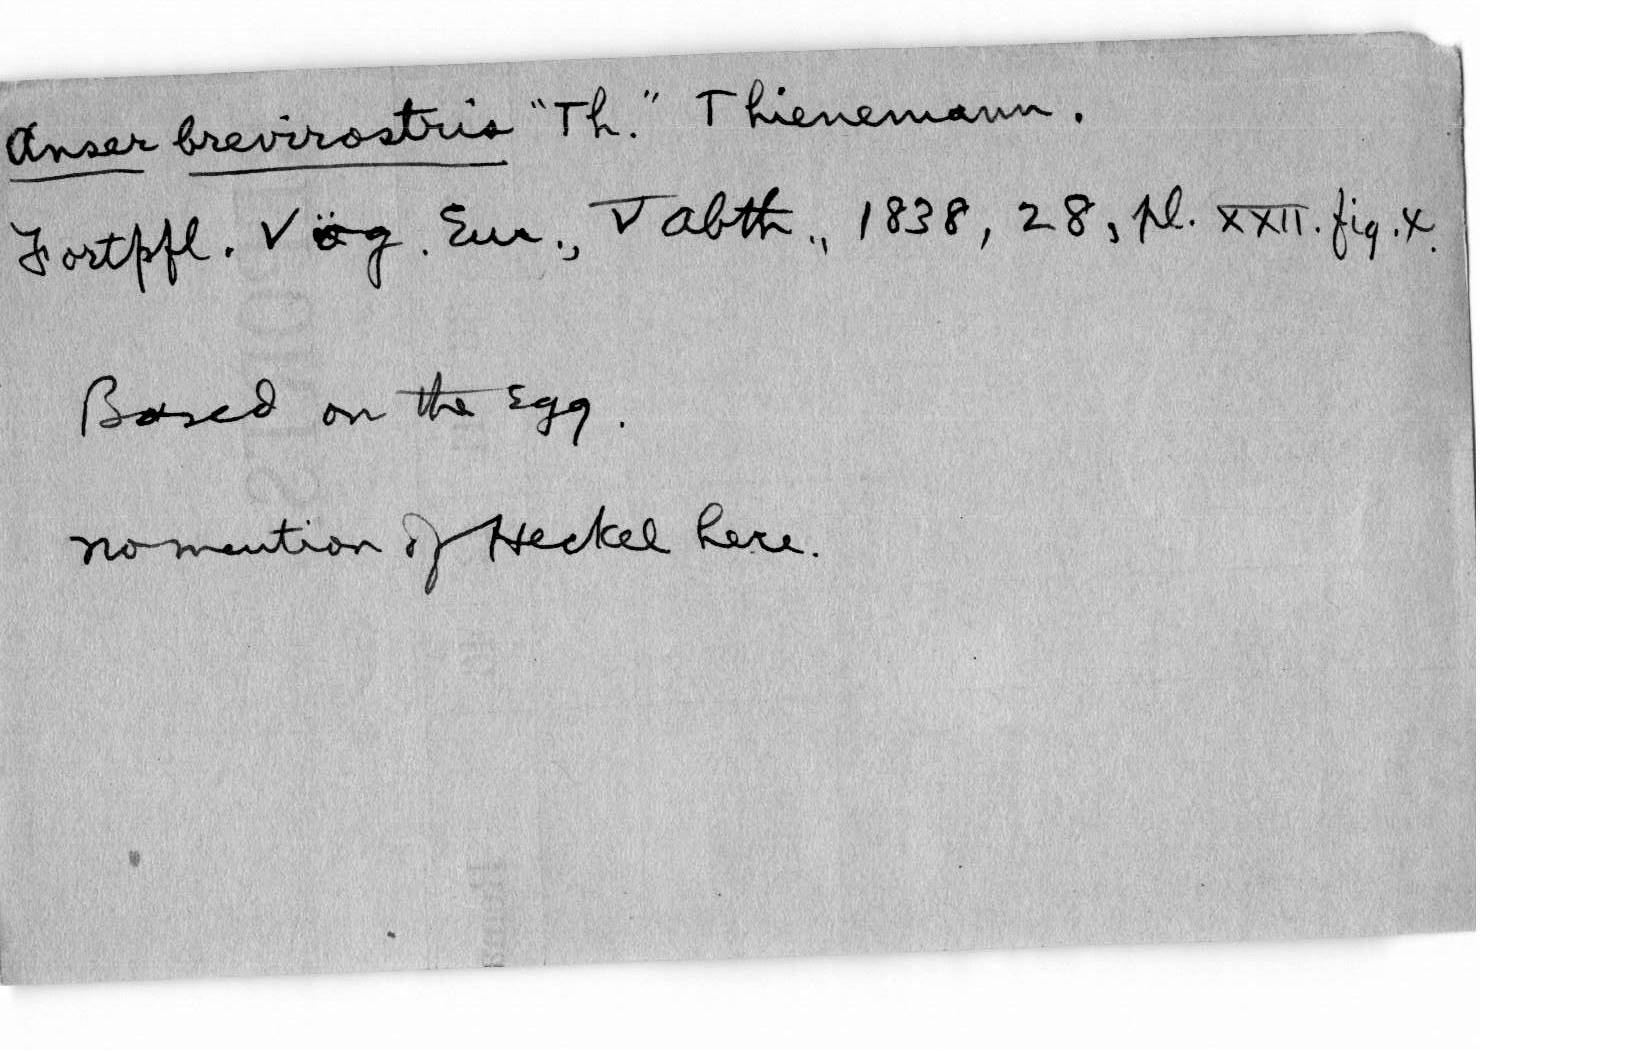 Anser brevirostris "Th." Thienemann.
Fortpfl. Vög. Eur., V abth., 1838, 28, pl. XXII. fig. X.
Based on the Egg.
no mention of Heckel here.